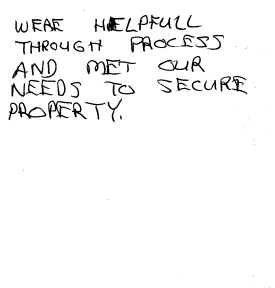 WERE HELPFULL
THROUGH PROCESS
AND MET OUR
NEEDS TO SECURE
PROPERTY.